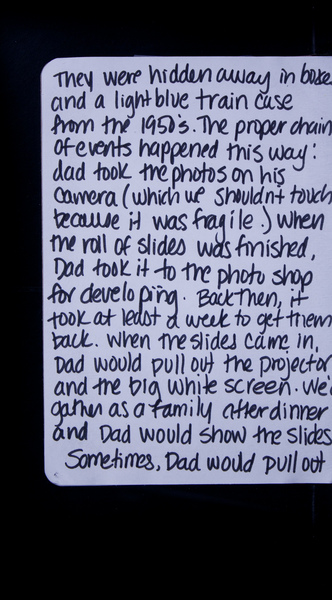 They were hidden away in boxe
and a light blue train case
from the 1950's. The proper chain
of events happened this way:
dad took the photos on his
camera (which we shouldn't touch
because it was fragile.) When
the roll of slides was finished,
Dad took it to the photo shop
for developing. Back then, it
took at least a week to get them
back. When the slides came in,
Dad would pull out the projector
and the big white screen. We'
gather as a family after dinner
and Dad would show the slides
Sometimes, Dad would pull out